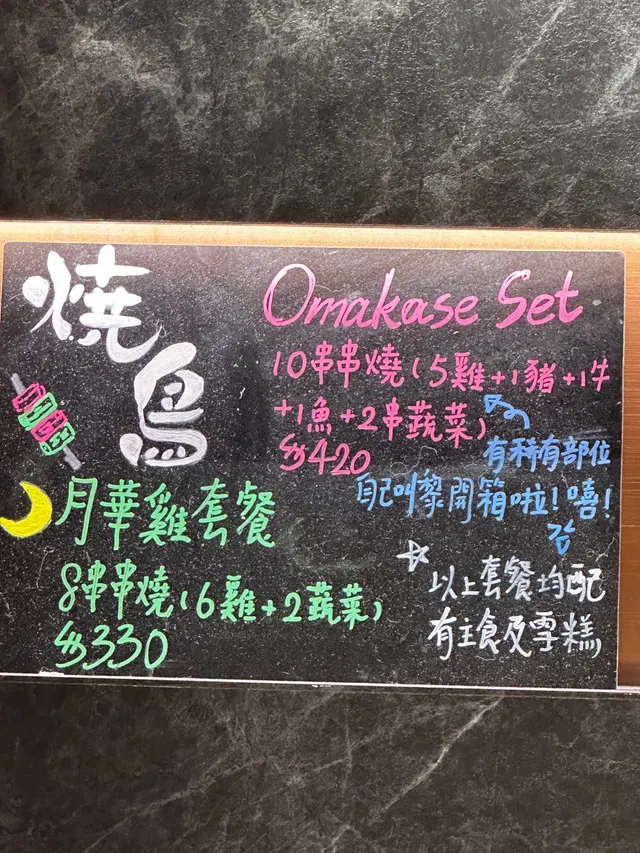 燒鳥
Omakase Set
10串串燒(5雞+1豬+1牛
+1魚+2串蔬菜)
$420
有稀有部位
自己叫黎開箱啦!嘻!
月華雞套餐
8串串燒(6雞+2蔬菜)
$330
以上套餐均配
有主食及雪糕